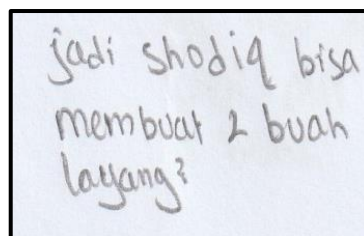 jadi shodiq bisa
membuat 2 buah
layang²